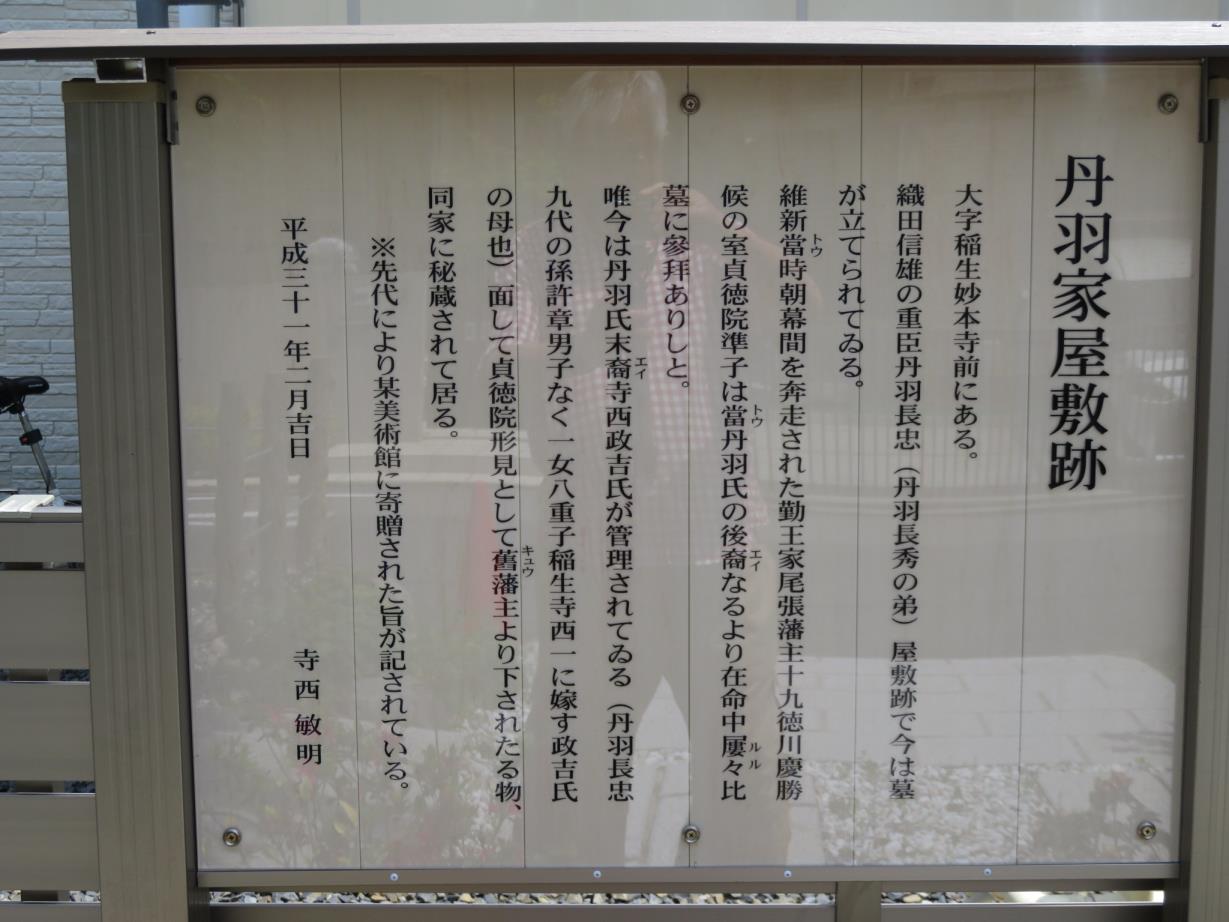 丹羽家屋敷跡
大字稲生妙本寺前にある。
織田信雄の重臣丹羽長忠（丹羽長秀の弟）屋敷跡で今は墓
が立てられてゐる。
維新當時朝幕間を奔走された勤王家尾張藩主十九徳川慶勝
候の室貞徳院準子は當丹羽氏の後裔なるより在命中屢々比
墓に參拜ありしと。
唯今は丹羽氏末裔寺西政吉氏が管理されてゐる（丹羽長忠
九代の孫許章男子なく一女八重子稲生寺西一に嫁す政吉氏
の母也）面して貞徳院形見として舊藩主より下されたる物、
同家に秘蔵されて居る。
※先代により某美術館に寄贈された旨が記されている。
平成三十一年二月吉日
寺西敏明
トウ
トウ
エイ
ルル
エイ
キュウ